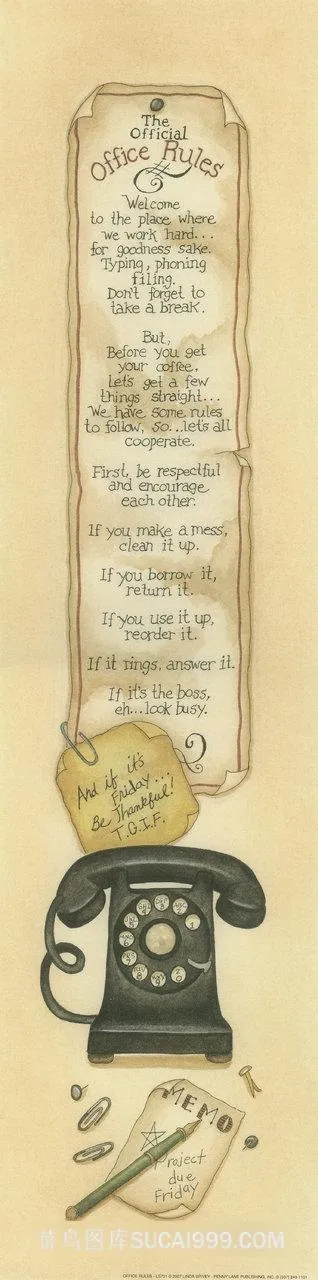 The
Official
Office Rules
Welcome
to the place where
we work hard...
for goodness sake.
Typing, phoning
filing.
Don't forget to
take a break.
But,
Before you get
your coffee,
let's get a few
things straight...
We have some rules
to follow, so...let's all
cooperate.
First, be respectful
and encourage
each other.
If you make a mess,
clean it up.
If you borrow it,
return it.
If you use it up,
reorder it.
If it rings, answer it.
If it's the boss,
eh...look busy.
And if it's
Friday...
Be Thankful!
T.G.I.F.
MEMO
Project
due
Friday
菜鸟图库SUCAI999.COM
OFFICE RULES - LS731 © 2007 LINDA SPIVEY - PENNY LANE PUBLISHING, INC.